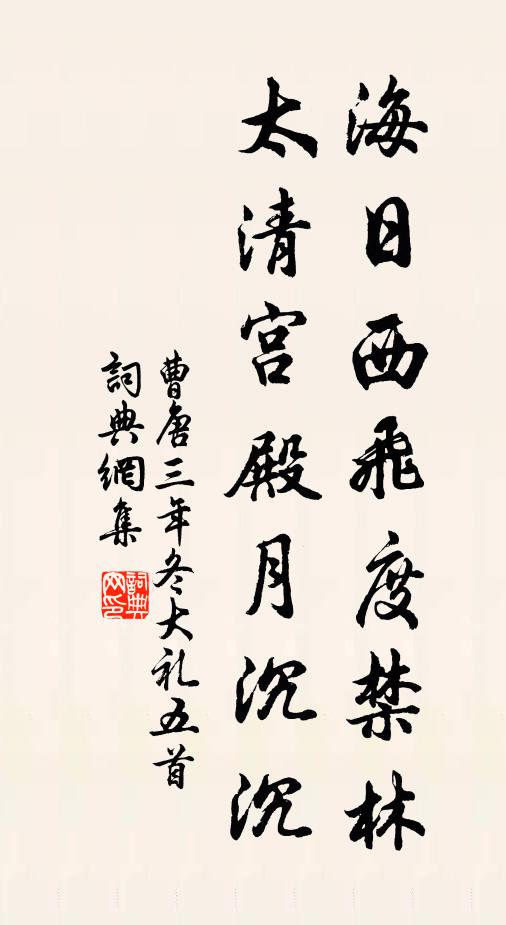 海日西飛度禁林
太清宮殿月沉沉
曹唐三年冬大礼五首
詞典網集
詞典
网印